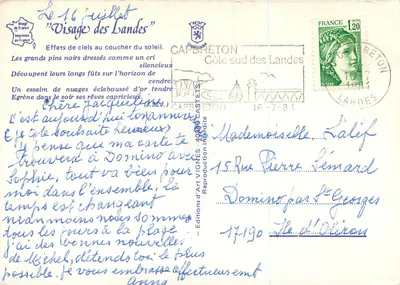 Le 16 juillet
"Visage des Landes"
Effets de ciels au coucher du soleil.
Les grands pins noirs dressés comme un cri
silencieux
Découpent leurs longs fûts sur l'horizon de
cendre.
Un essaim de nuages éclaboussé d'or tendre
Egrène dans le soir ses rêves capricieux.
Chère Jacqueline
C'est aujourd'hui ton
je te souhaite heureux
Je pense que ma carte te
trouvera à Domino avec
Sophie, tout va bien pour
moi dans l'ensemble, le
temps est changeant
néanmoins nous sommes
tous les jours à la plage
j'ai des bonnes nouvelles
de Michel, détends toi le plus
possible. Je vous embrasse affectueusement
Anna
Editions d'Art
Reproduction interdite
CAPBRETON
Côte sud des Landes
CAPBRETON
16-7-81
FRANCE
1,20
CAPBRETON
LANDES
Mademoiselle Latif
15 Rue Pierre Lémard
Domino par St Georges
17190 Ile d'Oléron